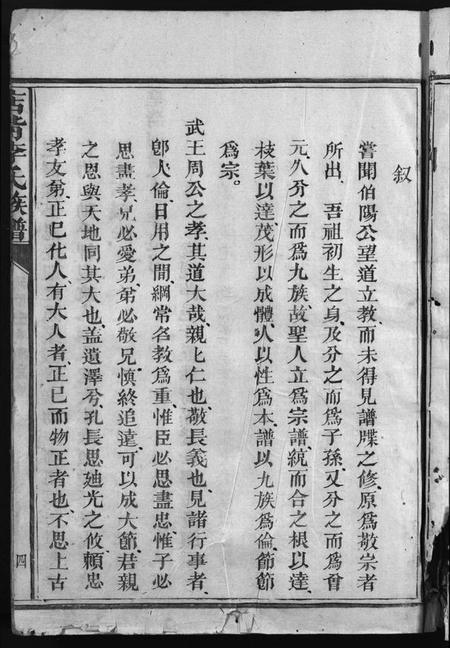 叙
嘗聞伯陽公望道立教而未得見譜牒之修原爲敬宗者
所出吾祖初生之身及分之而爲子孫又分之而爲曾
元久分之而爲九族故聖人立爲宗譜統而合之根以達
枝葉以達茂形以成體人以性爲本譜以九族爲倫節節
爲宗。
武王周公之孝其道大哉親上仁也敬長義也見諸行事者
卽人倫日用之間綱常名教爲重惟臣必思盡忠惟子必
思盡孝兄必愛弟弟必敬兄慎終追遠可以成大節君親
之恩與天地同其大也蓋遺澤兮孔長思廸光之攸賴忠
孝友第正已化人有大人者正已而物正者也不思上古
李氏族譜
四